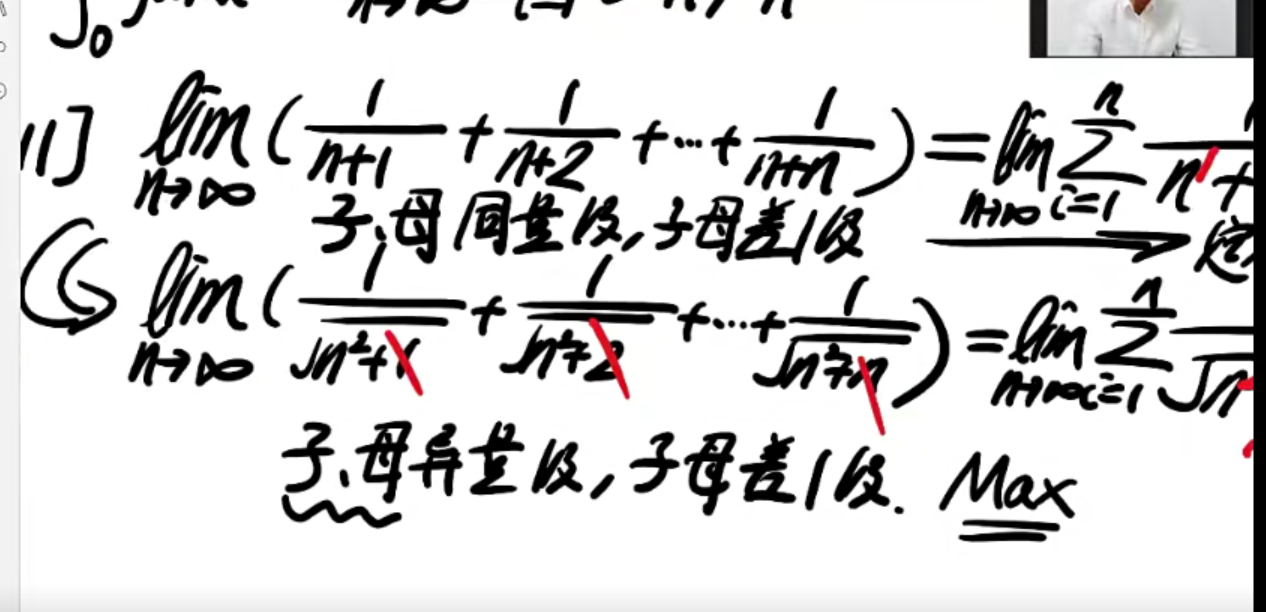 ∫₀
11] lim n→∞ ( 1/(n+1) + 1/(n+2) + ··· + 1/(n+n) ) = lim n→∞ Σ i=1 n 1/(n+
子、母同量级,子母差1级
lim n→∞ ( 1/√(n²+1) + 1/√(n²+2) + ··· + 1/√(n²+n) ) = lim n→∞ Σ i=1 n √n
子、母异量级,子母差1级. Max